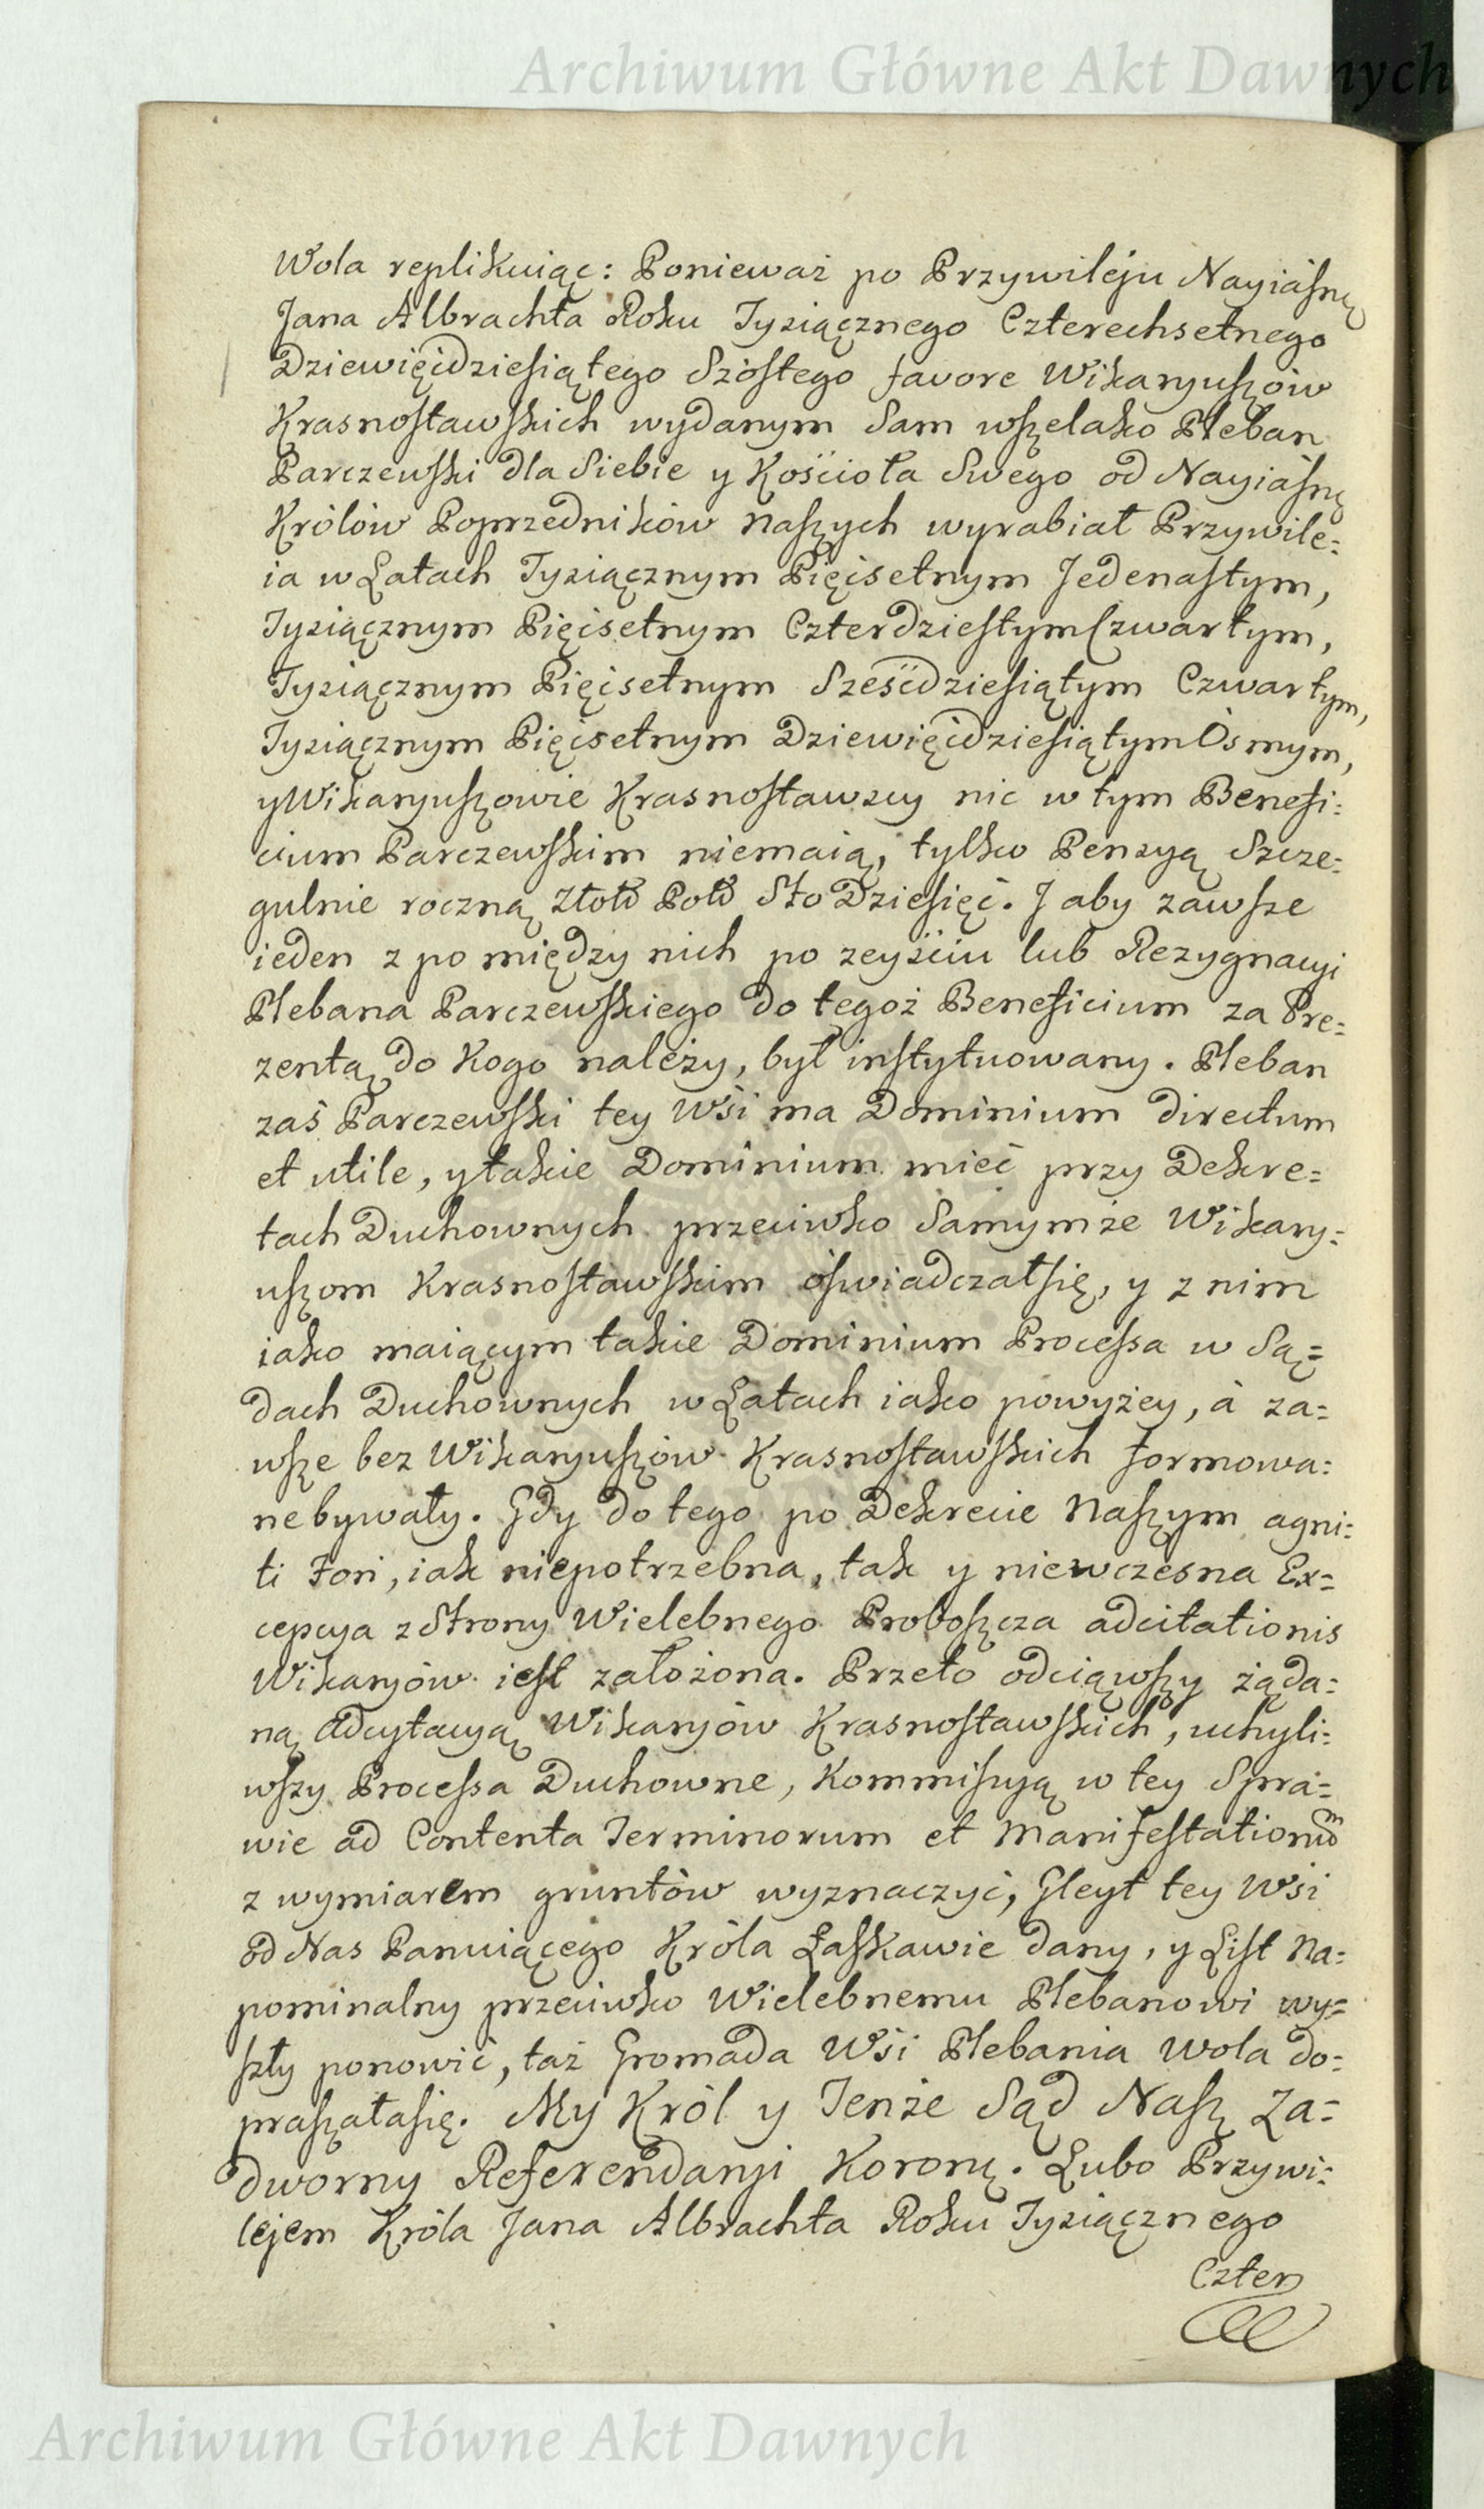 Archiwum Główne Akt Dawnych
Wola replikuiąc: Ponieważ po Przywileju Nayiaśnę
Jana Albrachta Roku Tysiącznego Czterechsetnego
Dziewięćdziesiątego Szóstego favore Wikaryuszów
Krasnostawskich wydanym Sam wszelako Pleban
Parczewski dla Siebie y Kościoła Swego od Nayiaśnę
Królów Poprzedników Naszych wyrabiał Przywile=
ia w Latach Tysiącznym Pięćsetnym Jedenastym,
Tysiącznym Pięćsetnym Czterdziestym Czwartym,
Tysiącznym Pięćsetnym Sześćdziesiątym Czwartym,
Tysiącznym Pięćsetnym Dziewięćdziesiątym Osmym,
y Wikaryuszowie Krasnostawscy nic w tym Benefi=
cium Parczewskim niemaią, tylko Pensyą Szcze=
gulnie roczną Złotd Pold Sto Dziesięć. J aby zawsze
ieden z po między nich po zeyściu lub Rezygnacyi
Plebana Parczewskiego do tegoż Beneficium za Pre=
zentą do Kogo należy, był instytuowany. Pleban
zaś Parczewski tey Wsi ma Dominium directum
et utile, y takie Dominium mieć przy Dekre=
tach Duchownych przeciwko Samymże Wikary=
uszom Krasnostawskim óswiadczałsię, y z nim
iako maiącym takie Dominium Processa w Są=
dach Duchownych w Latach iako powyżey, à za=
wsze bez Wikaryuszów Krasnostawskich formowa=
ne bywały. Gdy do tego po Dekrecie Naszym agni=
ti Fori, iak niepotrzebna, tak y niewczesna Ex=
cepcya z Strony Wielebnego Proboszcza adcitationis
Wikaryów iest założona. Przeto odciąwszy żąda=
ną Adcytacyą Wikaryów Krasnostawskich, uchyli=
wszy Processa Duchowne, Kommissyą w tey Spra=
wie ad Contenta Terminorum et Manifestationum
z wymiarem gruntów wyznaczyć, Gleyt tey Wsi
od Nas Panuiącego Króla Łaskawie dany, y List Na=
pominalny przeciwko Wielebnemu Plebanowi wy=
szły ponowić, taż Gromada Wsi Plebania Wola do=
praszałasię. My Król y Tenże Sąd Nasz Za=
dworny Referendaryi Koronę. Lubo Przywi=
lejem Króla Jana Albrachta Roku Tysiącznego
Czter
Archiwum Główne Akt Dawnych